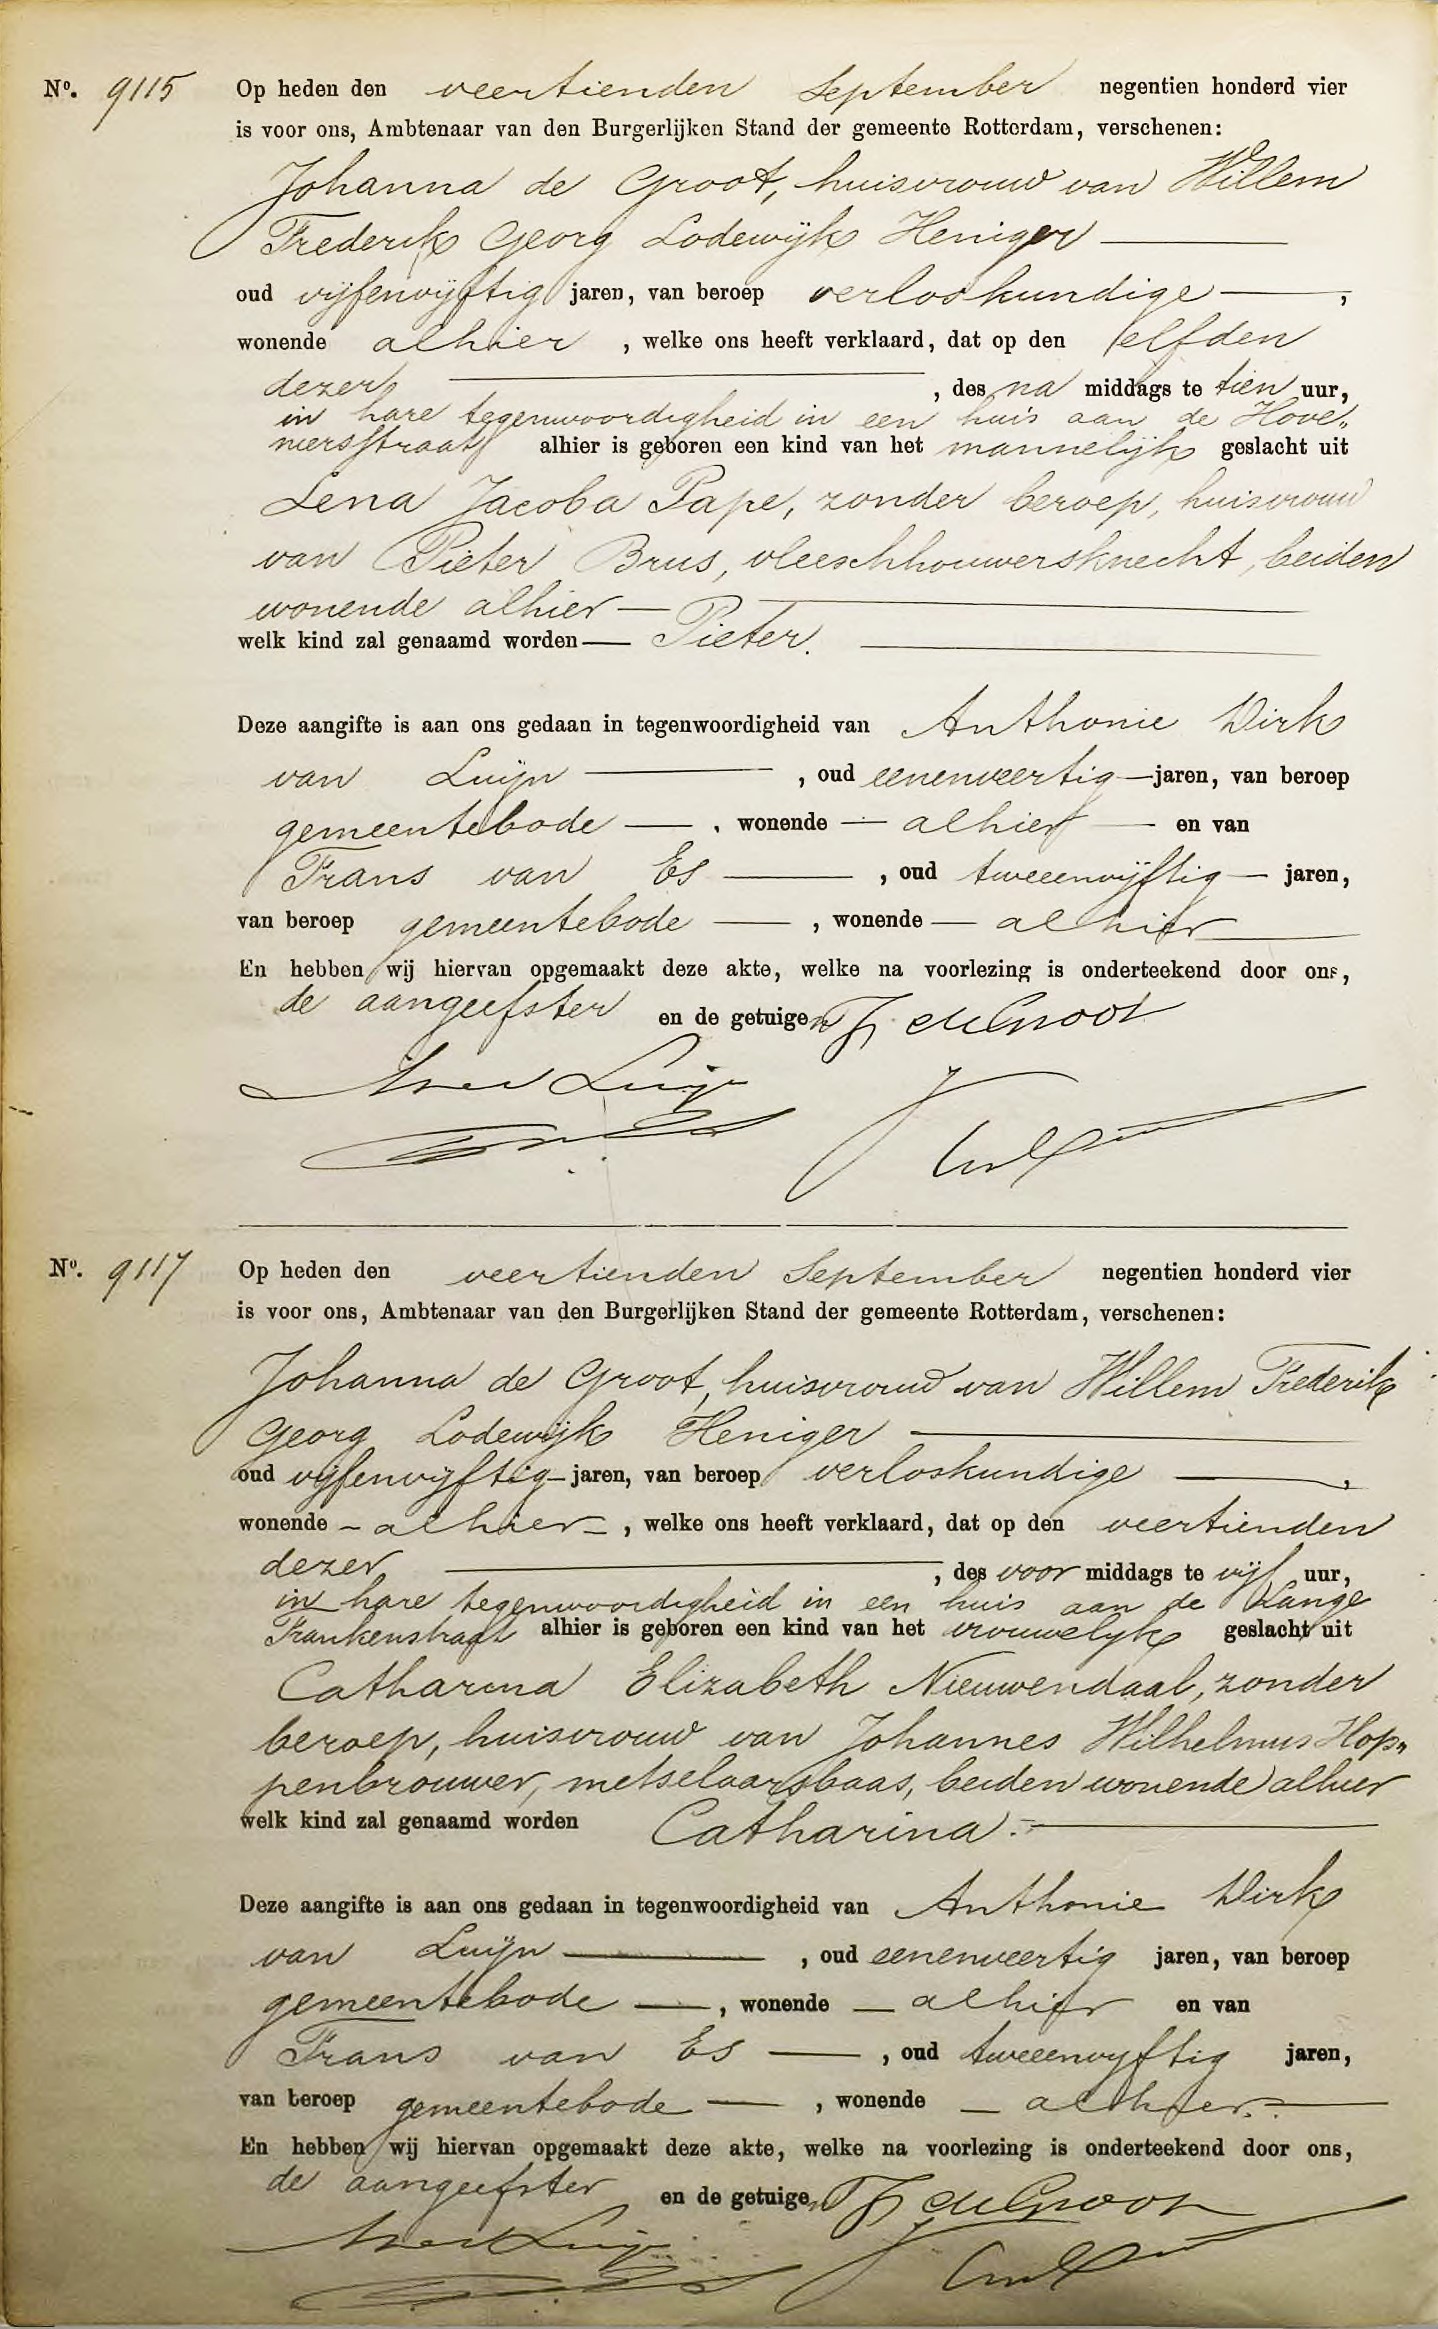 No. 9115 Op heden den veertienden September negentien honderd vier
is voor ons, Ambtenaar van den Burgerlijken Stand der gemeente Rotterdam, verschenen:
Johanna de Groot, huisvrouw van Willem
Frederik Georg Lodewijk Heniger
oud vijfenvijftig jaren, van beroep verloskundige,
wonende alhier, welke ons heeft verklaard, dat op den elfden
dezer, des na middags te tien uur,
in hare tegenwoordigheid in een huis aan de Hove„
niersstraat alhier is geboren een kind van het mannelijk geslacht uit
Lena Jacoba Pape, zonder beroep, huisvrouw
van Pieter Brus, vleeschhouwersknecht, beiden
wonende alhier
welk kind zal genaamd worden Pieter.
Deze aangifte is aan ons gedaan in tegenwoordigheid van Anthonie Dirk
van Luijn, oud eenenveertig jaren, van beroep
gemeentebode, wonende alhier en van
Frans van Es, oud tweeenvijftig jaren,
van beroep gemeentebode, wonende alhier
En hebben wij hiervan opgemaakt deze akte, welke na voorlezing is onderteekend door ons,
de aangeefster en de getuigen J. de Groot
No. 9117 Op heden den veertienden September negentien honderd vier
is voor ons, Ambtenaar van den Burgerlijken Stand der gemeente Rotterdam, verschenen:
Johanna de Groot, huisvrouw van Willem Frederik
Georg Lodewijk Heniger
oud vijfenvijftig jaren, van beroep verloskundige,
wonende alhier, welke ons heeft verklaard, dat op den veertienden
dezer, des voor middags te vijf uur,
in hare tegenwoordigheid in een huis aan de Lange
Frankenstraat alhier is geboren een kind van het vrouwelijk geslacht uit
Catharina Elizabeth Nieuwendaal, zonder
beroep, huisvrouw van Johannes Wilhelmus Hop„
penbrouwer, metselaarsbaas, beiden wonende alhier
welk kind zal genaamd worden Catharina.
Deze aangifte is aan ons gedaan in tegenwoordigheid van Anthonie Dirk
van Luijn, oud eenenveertig jaren, van beroep
gemeentebode, wonende alhier en van
Frans van Es, oud tweeenvijftig jaren,
van beroep gemeentebode, wonende alhier.
En hebben wij hiervan opgemaakt deze akte, welke na voorlezing is onderteekend door ons,
de aangeefster en de getuigen J. de Groot